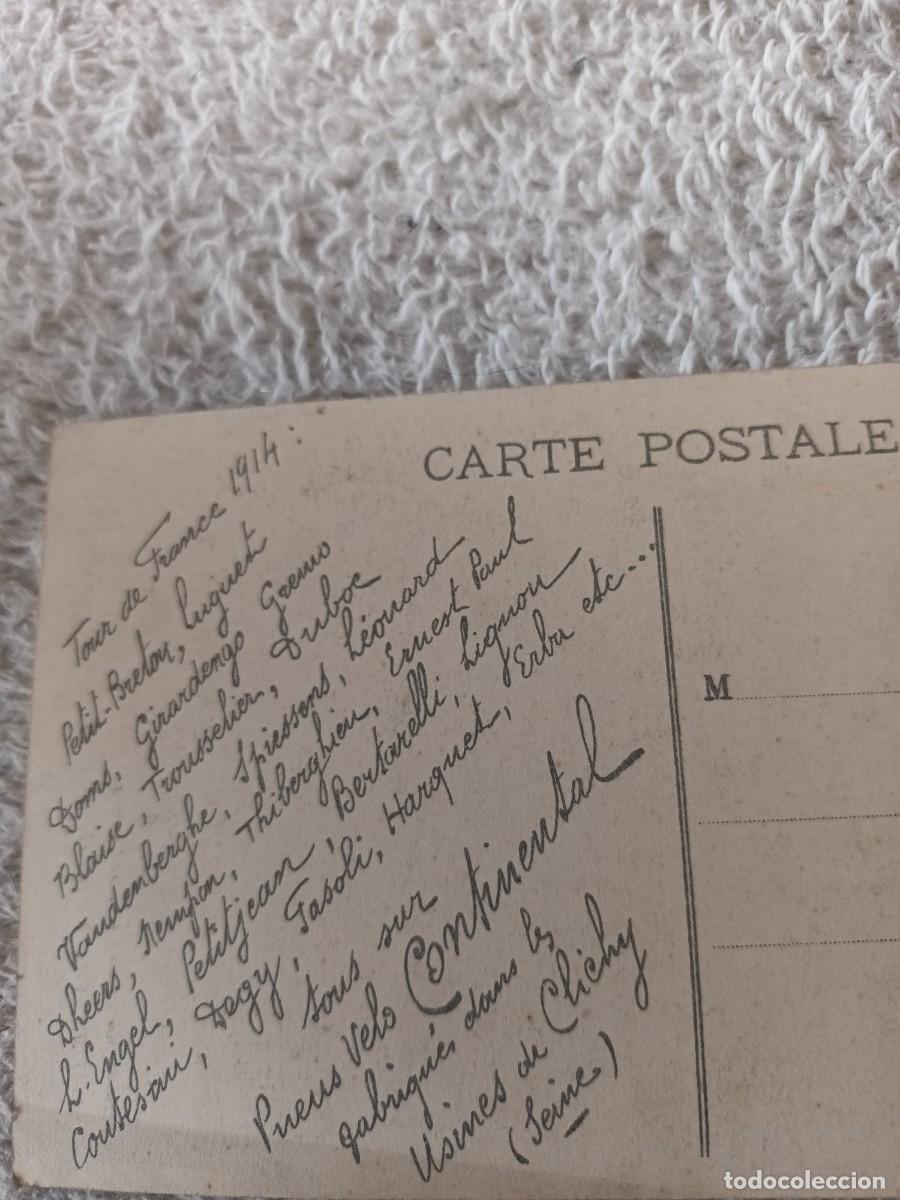 CARTE POSTALE
Tour de France 1914:
Petit-Breton, Luguet
Doms, Girardengo Gremo
Blaise, Trousselier, Duboc
Vandenberghe, Spiessens, Léonard
Dheers, Nempon, Thiberghien, Ernest Paul
L. Engel, Petitjean, Bertarelli, Lignon
Coutesini, Degy, Pasoli, Harquet, d'Erba etc...
tous sur
Pneus Velo Continental
fabriqués dans les
Usines de Clichy
(Seine)
M
todocoleccion
todocoleccion.net